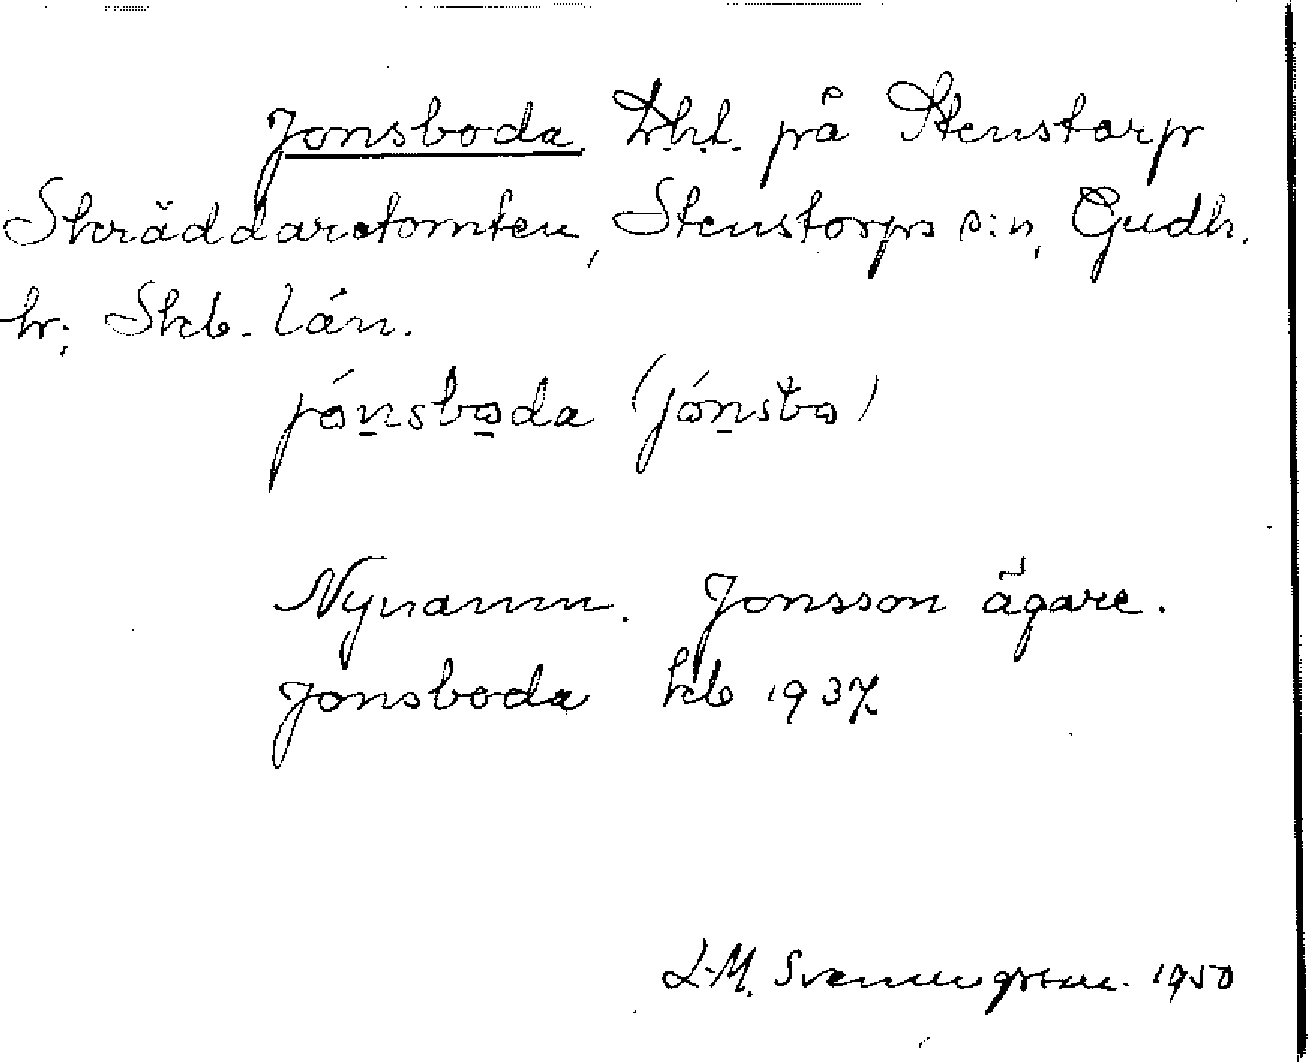 Jonsboda Lht. på Stenstorp
Skräddaretomten, Stenstorps s:n, Gudh.
hr; Skb. län.
jónsboda (jónsbo)
Nynamn. Jonsson ägare.
Jonsboda kb 1937
L-M. Svenungsson. 1950